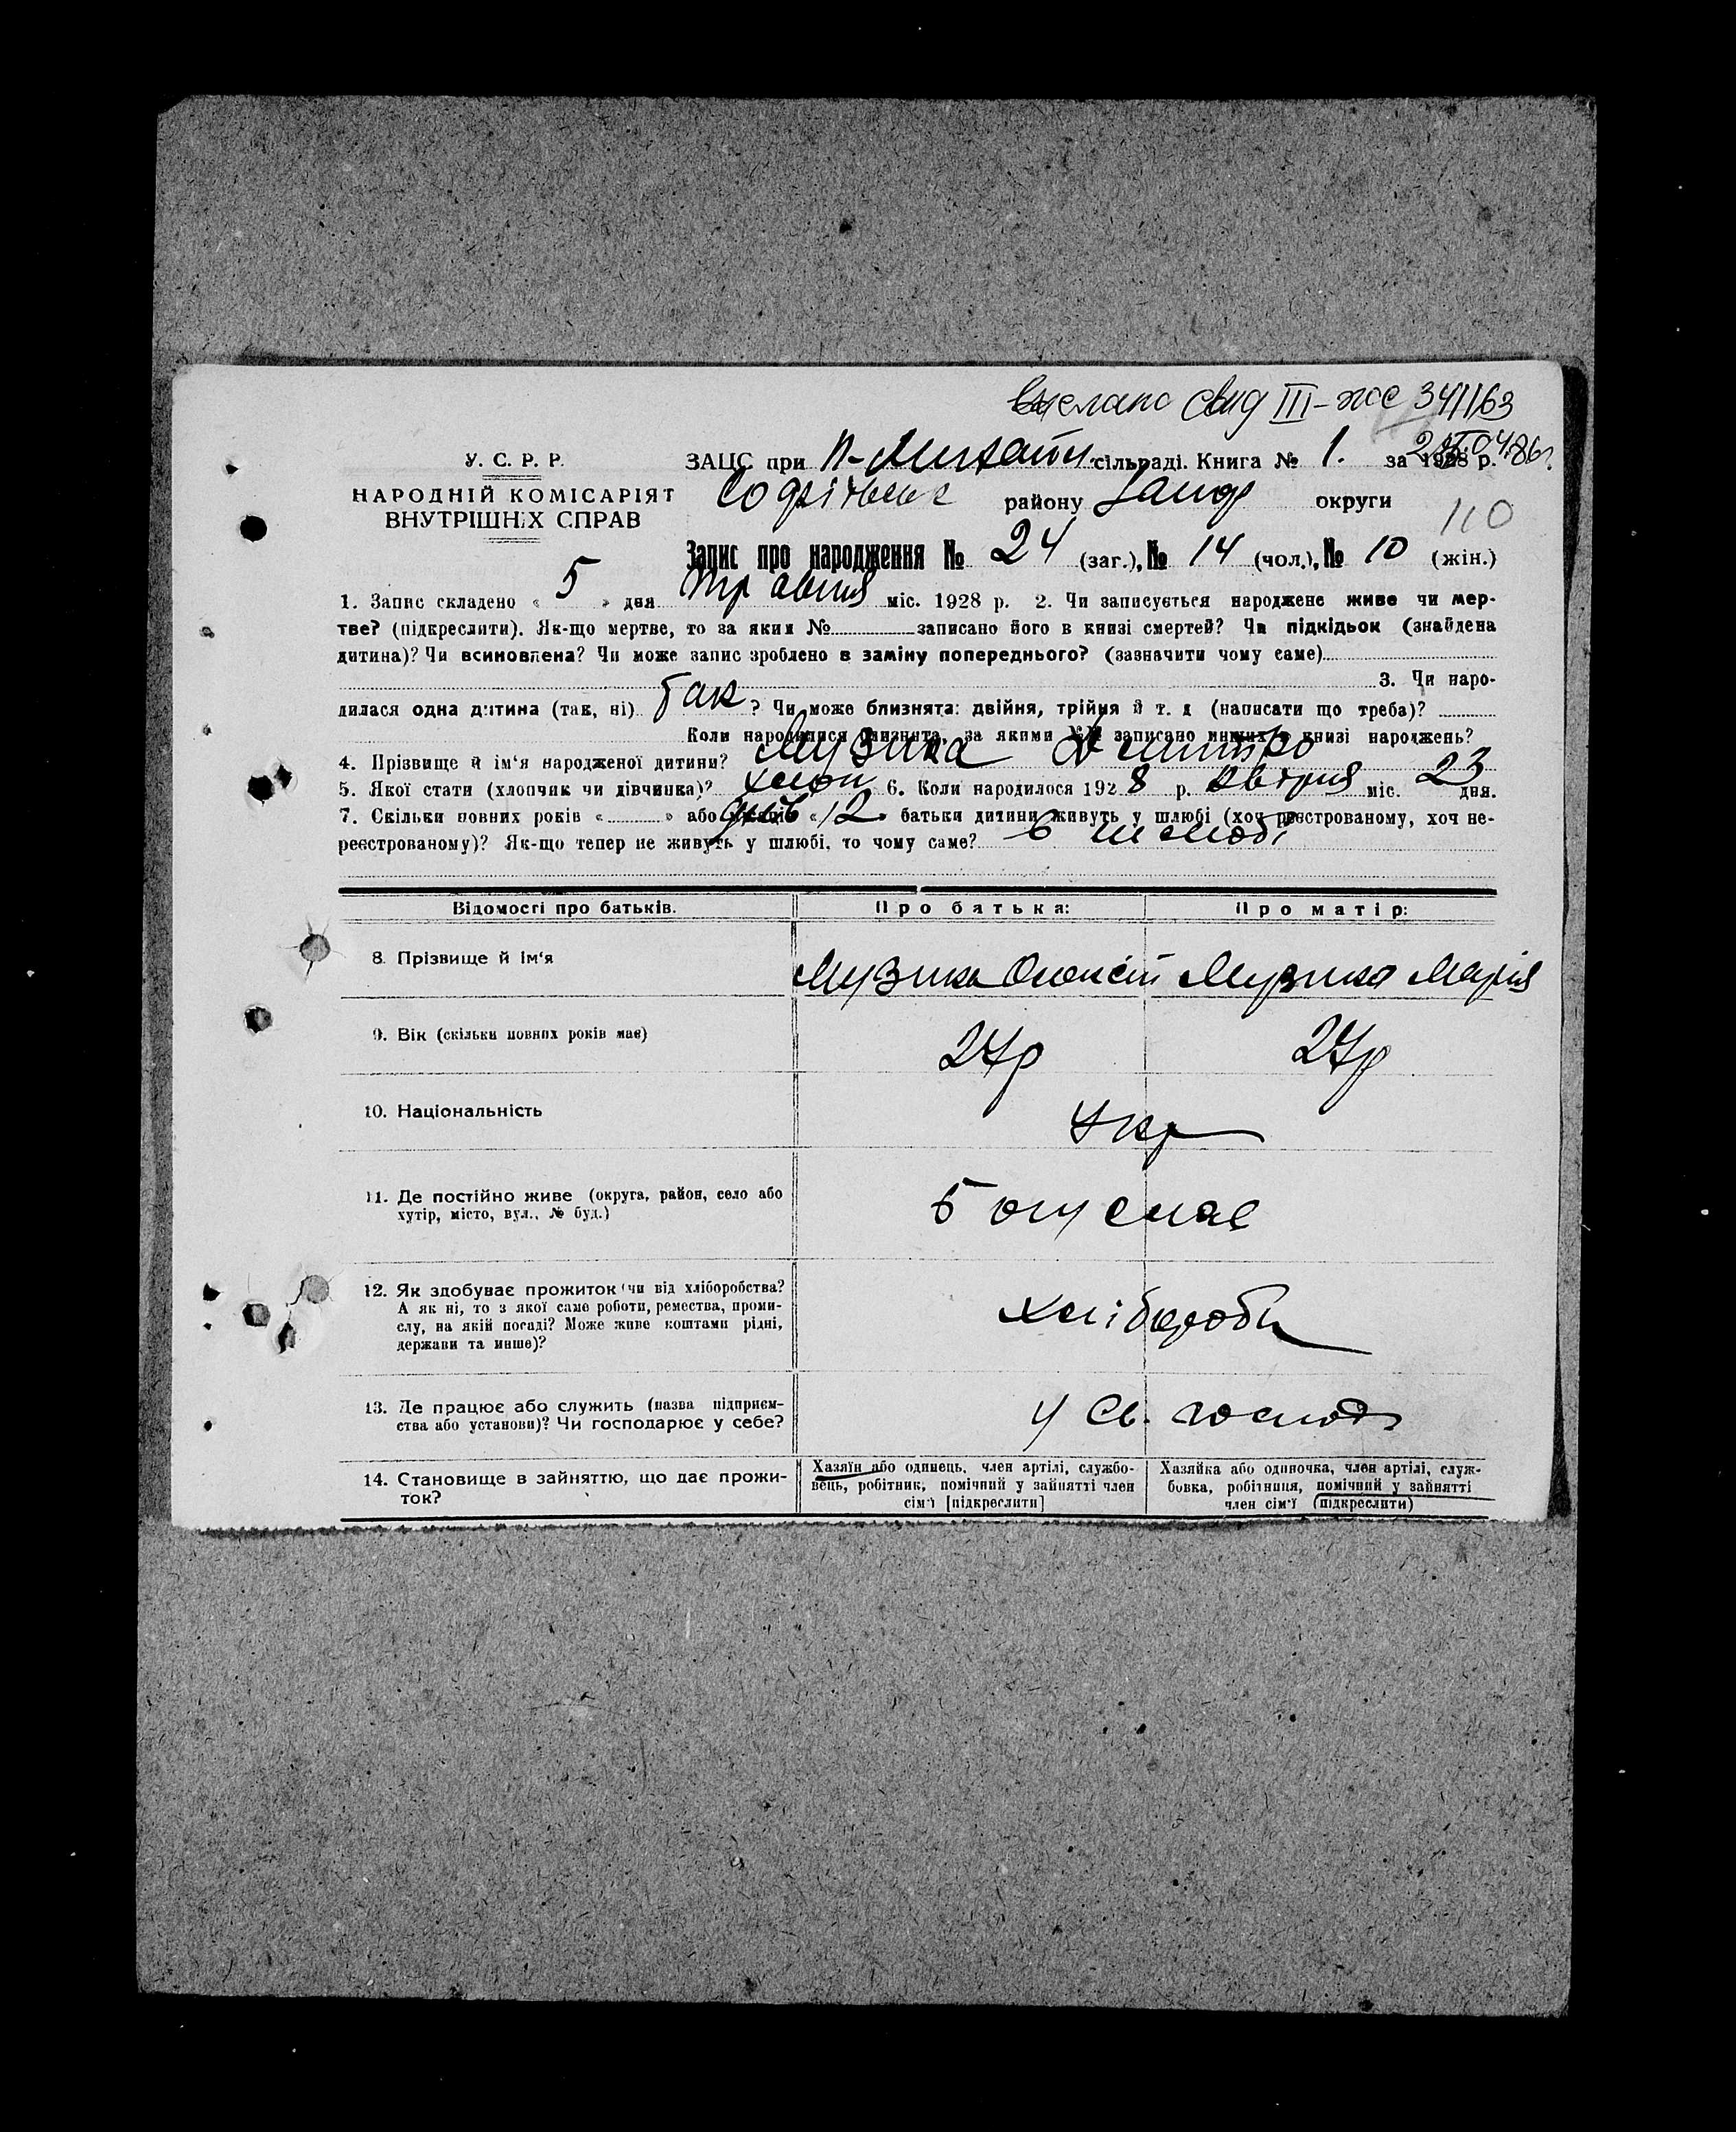 вислано свид III-ЖС 341163
25.04.86г.
У. С. Р. Р.
НАРОДНІЙ КОМІСАРІЯТ
ВНУТРІШНІХ СПРАВ
ЗАЦС при сільраді. Книга № 1. за 1928 р.
району округи
110
Запис про народження № 24 (заг.), № 14 (чол.), № 10 (жін.)
1. Запис складено « 5 » дня Травня міс. 1928 р. 2. Чи записується народжене живе чи мер-
тве? (підкреслити). Як-що мертве, то за яким № записано його в книзі смертей? Чи підкідьок (знайдена
дитина)? Чи всиновлена? Чи може запис зроблено в заміну попереднього? (зазначити чому саме)
3. Чи наро-
дилася одна дитина (так, ні) так ? Чи може близнята: двійня, трійня й т. д (написати що треба)?
Коли народилися близнята, за якими №№ записано инших в книзі народжень?
4. Прізвище й ім‘я народженої дитини? Музика Дмитро
5. Якої стати (хлопчик чи дівчинка)? хлоп 6. Коли народилося 1928 р. Квітня міс. 23 дня.
7. Скільки повних років « » або « 12 » батьки дитини живуть у шлюбі (хоч реєстрованому, хоч не-
реєстрованому)? Як-що тепер не живуть у шлюбі, то чому саме? В шлюбі
Відомості про батьків. Про батька: Про матір:
8. Прізвище й ім‘я Музика Олексій Музика Марія
9. Вік (скільки повних років має) 27р 27р
10. Національність Укр
11. Де постійно живе (округа, район, село або
хутір, місто, вул., № буд.)
12. Як здобуває прожиток (чи від хліборобства?
А як ні, то з якої саме роботи, ремества, проми-
слу, на якій посаді? Може живе коштами рідні,
держави та инше)?
хлібороби
13. Де працює або служить (назва підприєм-
ства або установи)? Чи господарює у себе?
у св. господ
14. Становище в зайняттю, що дає прожи-
ток?
Хазяїн або одинець, член артілі, службо-
вець, робітник, помічний у зайнятті член
сім‘ї [підкреслити]
Хазяйка або одиночка, член артілі, служ-
бовка, робітниця, помічний у зайнятті
член сім‘ї (підкреслити)